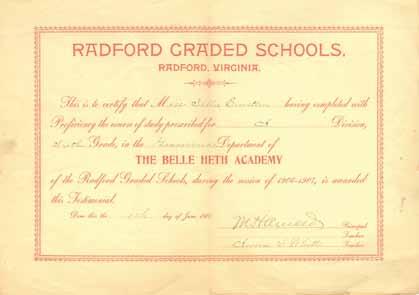 RADFORD GRADED SCHOOLS.
RADFORD, VIRGINIA.
This is to certify that Miss having completed with
Proficiency the course of study prescribed for A Division,
Grade, in the Grammar Department of
THE BELLE HETH ACADEMY
of the Radford Graded Schools, during the session of 1906-1907, is awarded
this Testimonial.
Done this the day of June 190
Principal
Teacher
Teacher